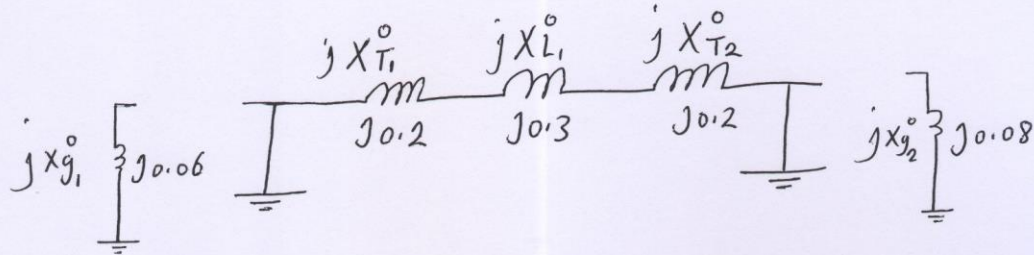 j X°T1 j X°L1 j X°T2
j0.2 j0.3 j0.2
j X°g1 j0.06
j X°g2 j0.08